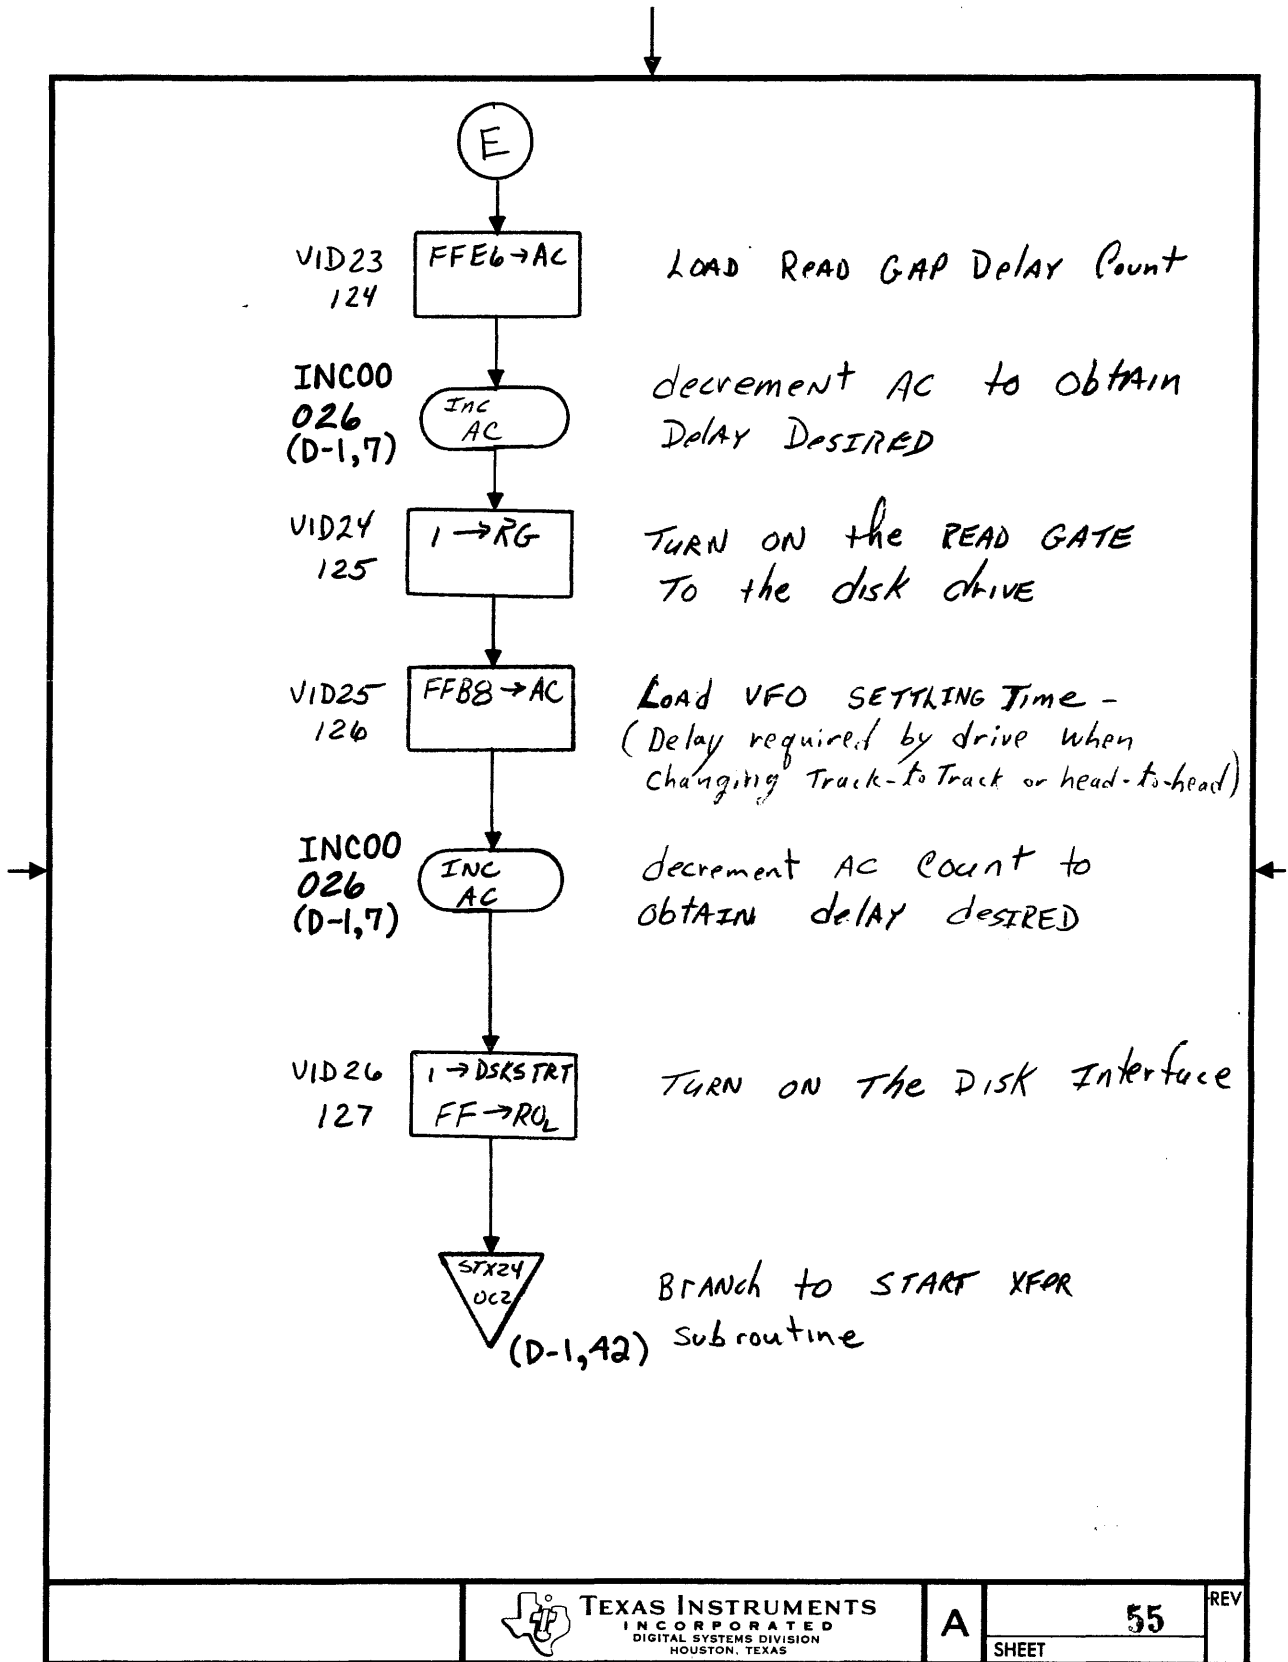 E
VID23
124
FFE6→AC
LOAD READ GAP Delay Count
INC00
026
(D-1,7)
Inc
AC
decrement AC to ObtAIn
DelAY DesIRED
VID24
125
1→RG
TURN ON the READ GATE
To the disk drIVE
VID25
126
FFB8→AC
LoAd VFO SETTLING Time -
(Delay required by drive when
changing Track-to Track or head-to-head)
INC00
026
(D-1,7)
INC
AC
decrement AC Count to
obtAIN delAY desIRED
VID26
127
1→DSKSTRT
FF→R0L
TURN ON The DISK Interface
STX24
0C2
(D-1,42)
BrANch to START XFER
subroutine
TEXAS INSTRUMENTS
INCORPORATED
DIGITAL SYSTEMS DIVISION
HOUSTON, TEXAS
A
55
SHEET
REV